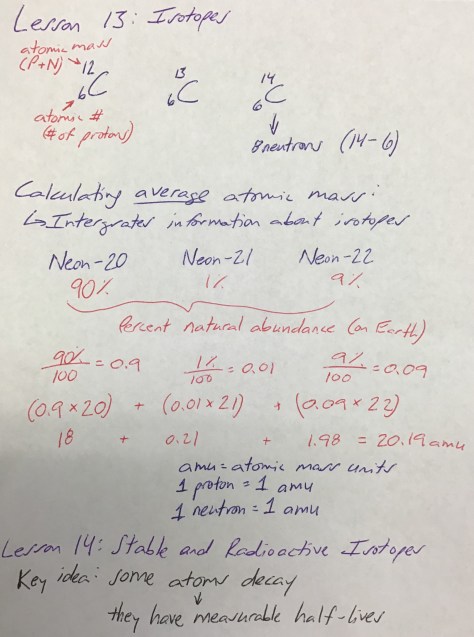 Lesson 13: Isotopes
atomic mass
(P+N) → ¹²₆C ¹³₆C ¹⁴₆C
atomic #
(# of protons)
8 neutrons (14-6)
Calculating average atomic mass:
↳ Intergrates information about isotopes
Neon-20 Neon-21 Neon-22
90% 1% 9%
Percent natural abundance (on Earth)
90%/100 = 0.9 1%/100 = 0.01 9%/100 = 0.09
(0.9 x 20) + (0.01 x 21) + (0.09 x 22)
18 + 0.21 + 1.98 = 20.19 amu
amu = atomic mass units
1 proton = 1 amu
1 neutron = 1 amu
Lesson 14: Stable and Radioactive Isotopes
Key idea: some atoms decay
↓
they have measurable half-lives